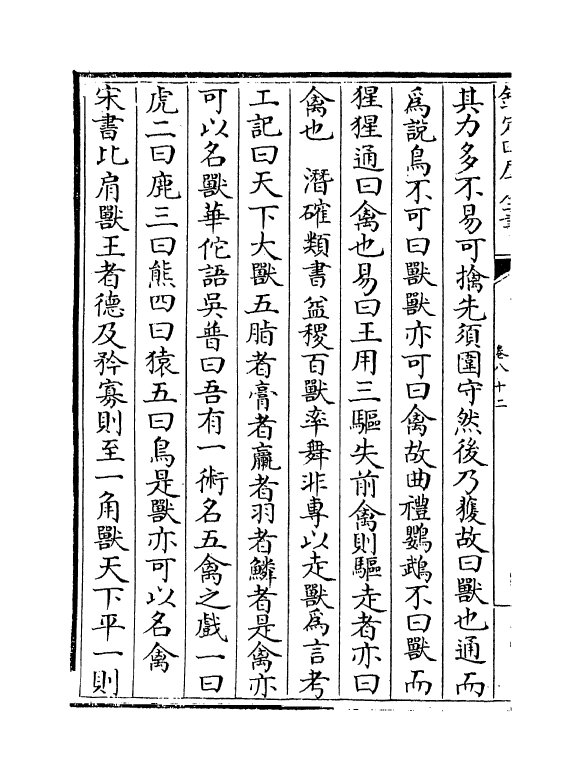 其力多不易可擒先須圍守然後乃獲故曰獸也通而
為說鳥不可曰獸獸亦可曰禽故曲禮鸚鵡不曰獸而
猩猩通曰禽也易曰王用三驅失前禽則驅走者亦曰
禽也　潛確類書益稷百獸率舞非専以走獸為言考
工記曰天下大獸五脂者膏者臝者羽者鱗者是禽亦
可以名獸華佗語吳普曰吾有一術名五禽之戲一曰
虎二曰鹿三曰熊四曰猿五曰鳥是獸亦可以名禽
宋書比肩獸王者德及矜寡則至一角獸天下平一則
卷八十二